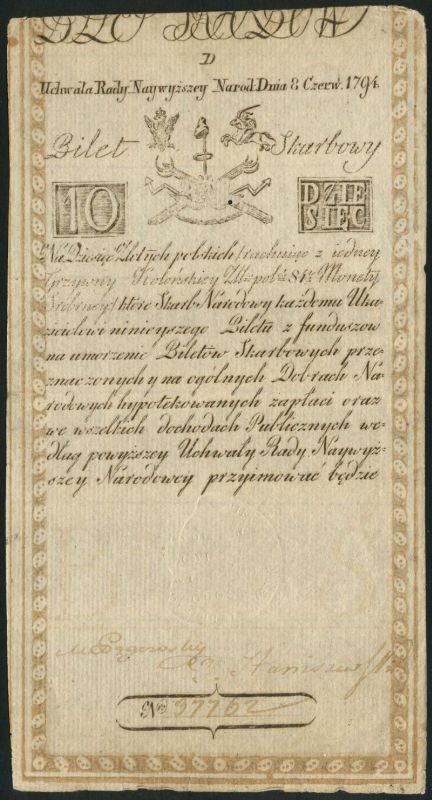 D
Uchwała Rady Naywyższey Narod: Dnia 8 Czerw: 1794.
Bilet Skarbowy
10 DZIE
SIĘC
Na Dziesięć Złotych polskich rachuiąc z iedney
Grzywny Kolońskiey Zł: pol: 84½ Monety
Srebrney które Skarb Narodowy każdemu Uka
zicielowi ninieyszego Biletu z funduszow
na umorzenie Biletów Skarbowych prze-
znaczonych y na ogólnych Dobrach Na-
rodowych hypotekowanych zapłaci oraz
we wszelkich dochodach Publicznych we-
dług powyższey Uchwały Rady Naywyż-
szey Narodowey przyimować będzie
No 37762